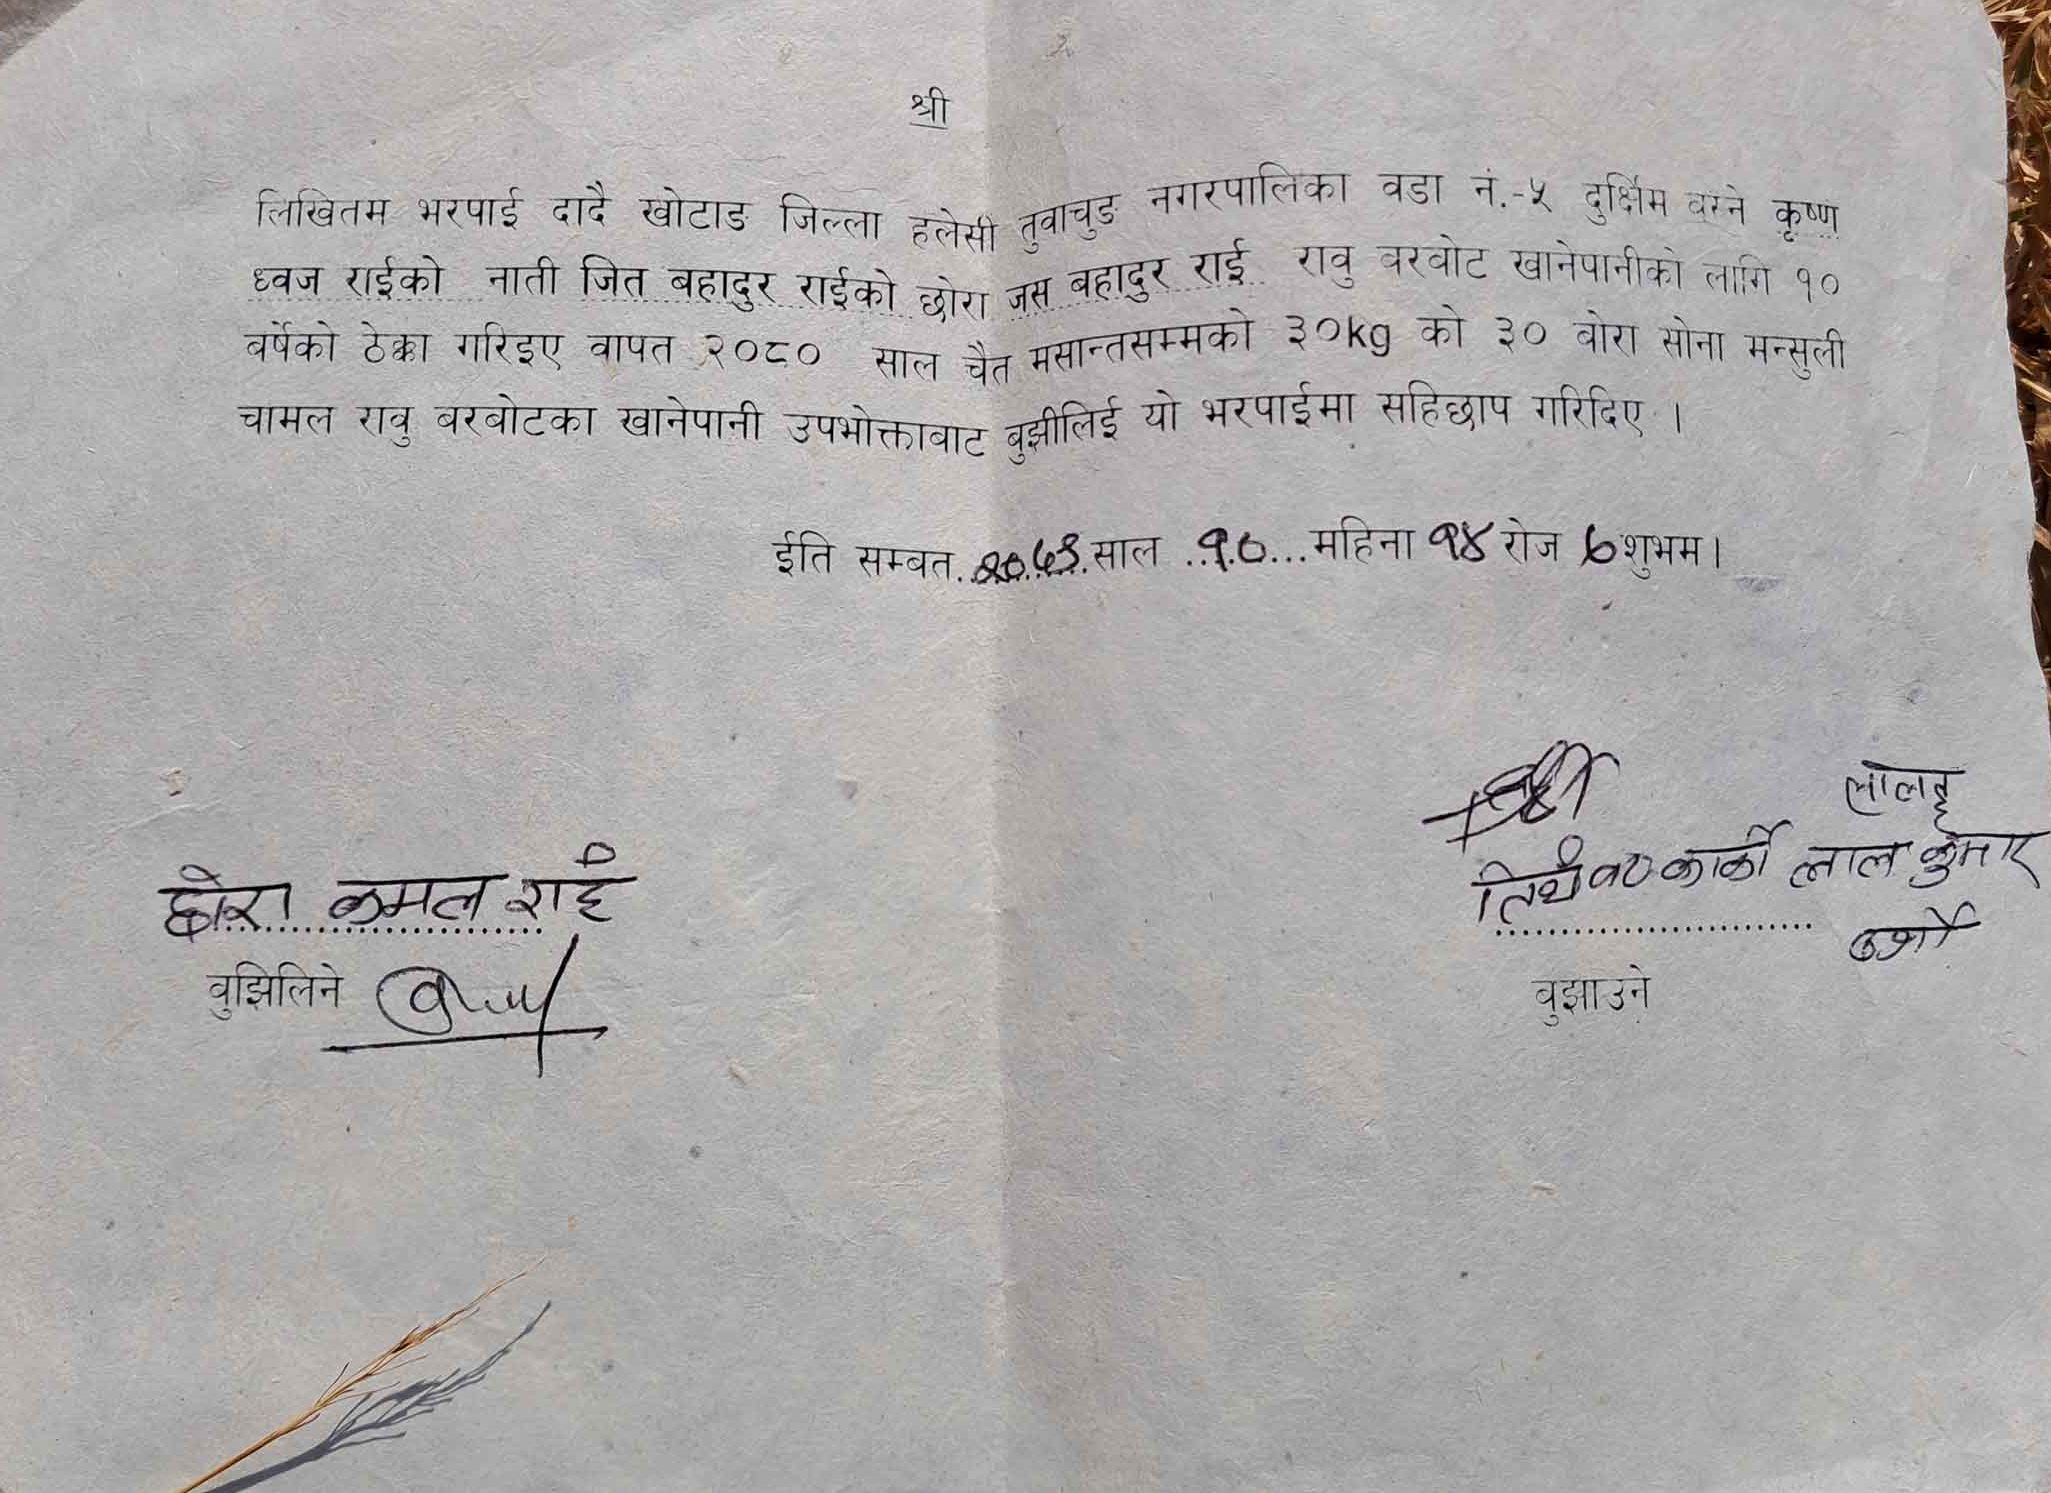 श्री
लिखितम भरपाई दादै खोटाङ जिल्ला हलेसी तुवाचुङ नगरपालिका वडा नं.-५ दुर्छिम वस्ने कृष्ण
ध्वज राईको नाती जित बहादुर राईको छोरा जस बहादुर राई रावु वरवोट खानेपानीको लागि १०
वर्षेको ठेक्का गरिइए वापत २०८० साल चैत मसान्तसम्मको ३०kg को ३० वोरा सोना मन्सुली
चामल रावु वरवोटका खानेपानी उपभोक्तावाट वुझीलिई यो भरपाईमा सहिछाप गरिदिए ।
ईति सम्वत साल १०...महिना १४ रोज शुभम।
छोरा कमल राई
वुझिलिने
कार्की लाल कुमार
वुझाउने